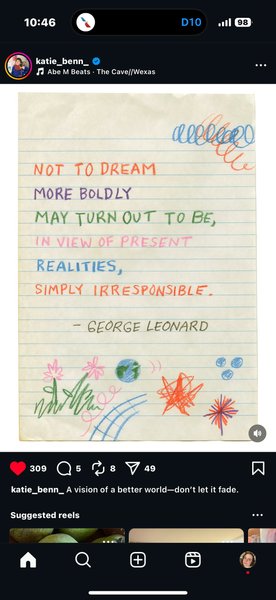 10:46
D10
98
katie_benn_
Abe M Beats · The Cave//Wexas
NOT TO DREAM
MORE BOLDLY
MAY TURN OUT TO BE,
IN VIEW OF PRESENT
REALITIES,
SIMPLY IRRESPONSIBLE.
– GEORGE LEONARD
309 5 8 49
katie_benn_ A vision of a better world—don't let it fade.
Suggested reels